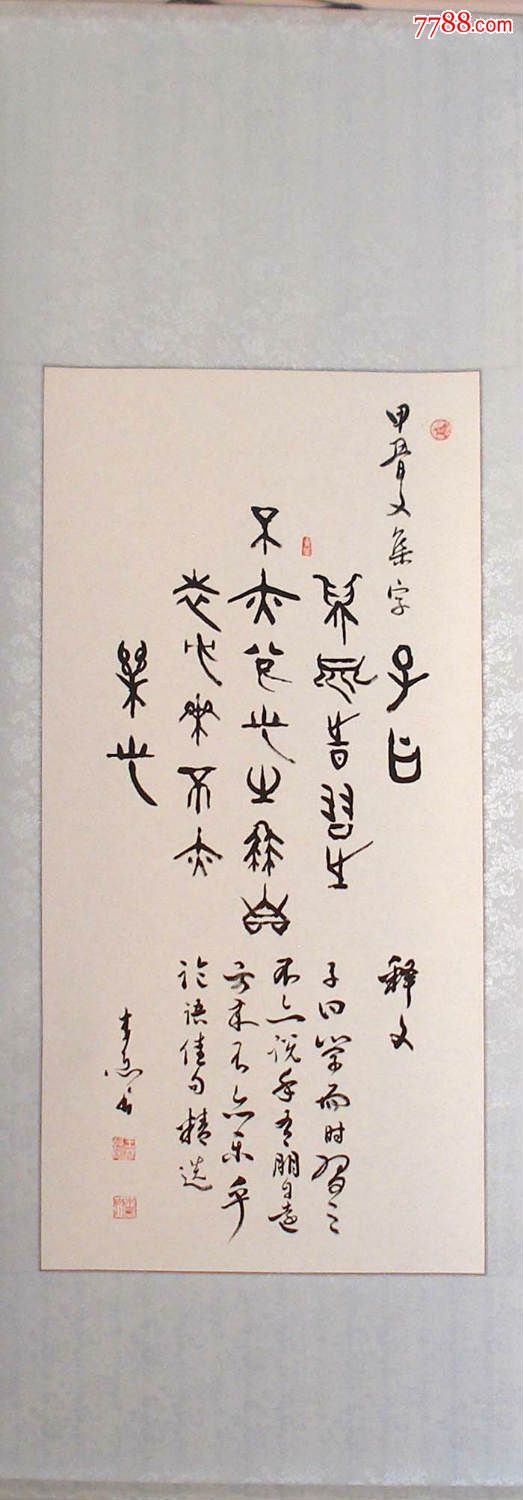 7788.com
甲骨文集字
子曰
學而時習之
不亦說乎有朋自
遠方來不亦
樂乎
释文
子曰学而时习之
不亦说乎有朋自远
方来不亦乐乎
论语佳句精选
书